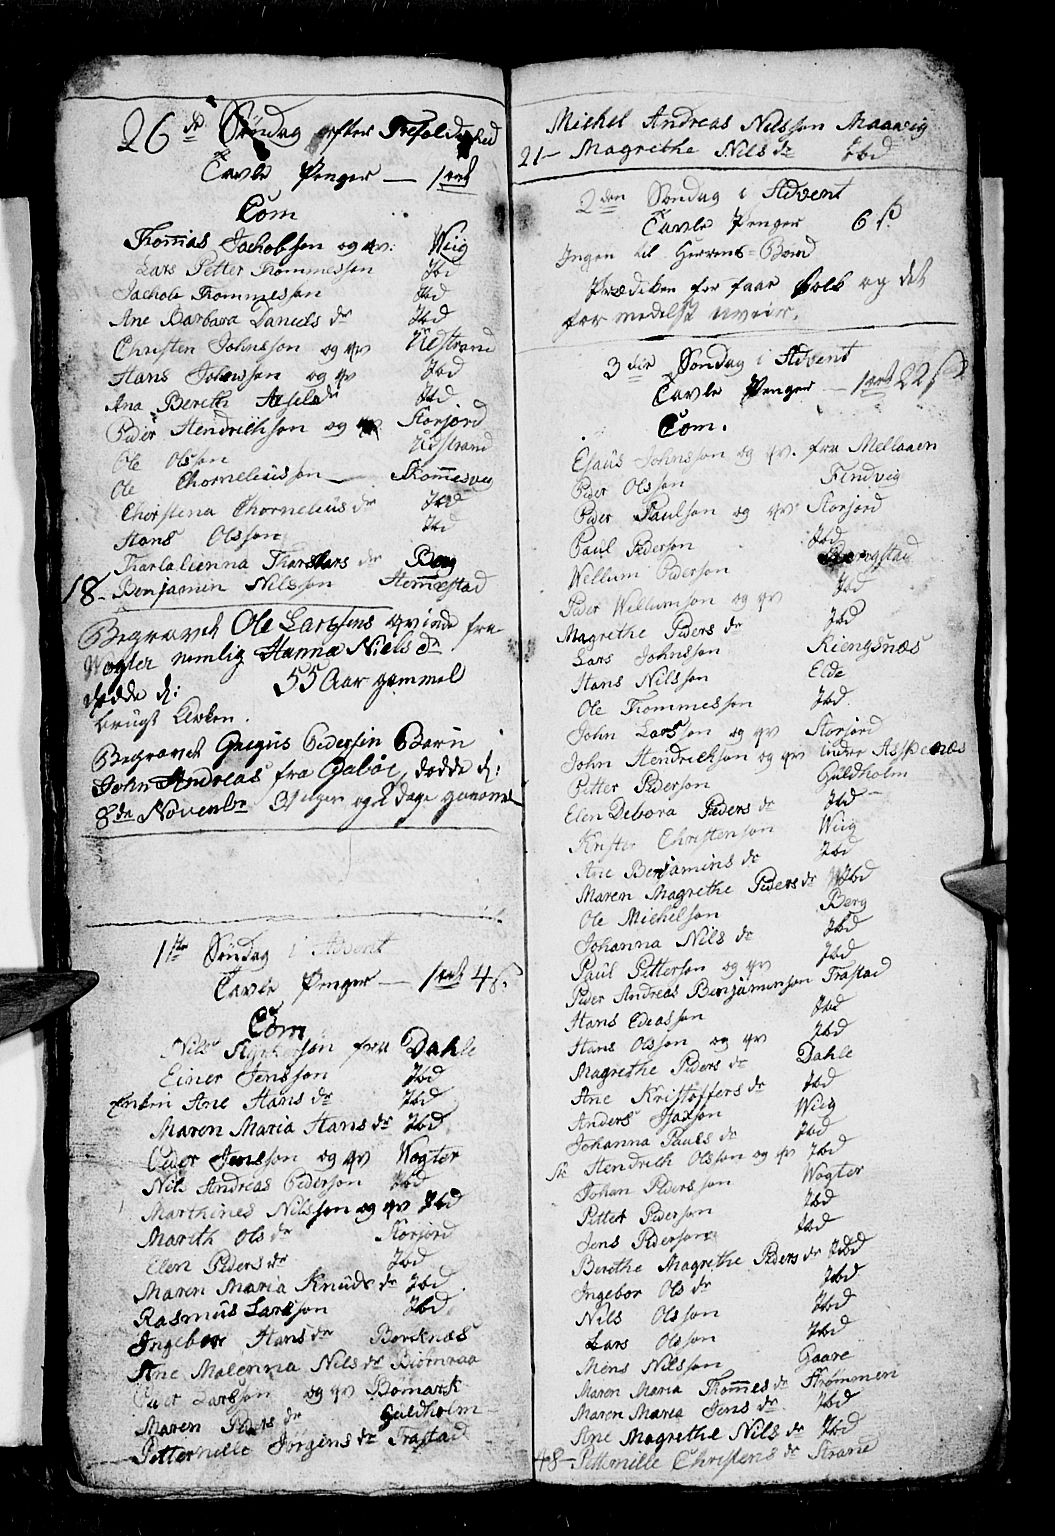 26 de Søndag efter Trefoldighed
Tavle Penger — 1 mk
Com
Thomas Jachobsen og qv: Wiig
Lars Petter Thommesson Ibd
Jachob Thommesson Ibd
Ane Barbara Daniels dr Ibd
Christen Johnsson og qv Udstrand
Hans Johnsson og qv Ibd
Ana Bereth Axels dr Ibd
Peder Hendrichson og qv Korjord
Ole Olsson Udstrand
Ole Chorneliusson — Thommesvig
Chorstena Chornelius dr Ibd
Hans Olsson Ibd
Karlalienna Karslars dr Berg
18 - Benjamin Nilsson Hemmestad
Begravet Ole Larssens qvinde fra
Wogter nemlig Hanna Niels dr
døde d: 55 Aar gammel
brugt Kirken.
Begravet Gregus Pedersen Barn
John Andreas fra Gabøe, døde d:
8de Novembr 3 Uger og 2 Dage gammel
1ste Søndag i Advent
Tavle Penger — 1 mk 4 s.
Com
Nils fra Dahle
Einer Jensson Ibd
Enken Ane Hans dr Ibd
Maren Maria Hans dr Ibd
Peder Jensson og qv Wogter
Nils Andreas Pederson Ibd
Marthines Nilsson og qv Ibd
Mareth Ols dr Korjord
Elen Peders dr Ibd
Maren Maria Knuds dr Ibd
Rasmus Larsson Ibd
Ingebor Hans dr Borknæs
Ane Malenna Nils dr Biømraa
Peder Larsson og qv Bømark
Maren Peders dr Guldholm
Petternelle Jørgens dr Trastad
Michel Andreas Nilsson Maavig
21 — Magrethe Nils dr Ibd
2den Søndag i Advent
Tavle Penger 6 s.
Ingen til Herrens-Bord
Prædiken for faae Folk og det
formedelst uveir.
3die Søndag i Advent
Tavle Penger — 1 mk 22 s
Com.
Esaus Johnsson og qv. fra Mellaaen
Peder Olsson Findvig
Peder Paulson og qv Korjord
Paul Pederson Ibd
Wellum Pederson Borgstad
Peder Wellumson og qv Ibd
Magrethe Peders dr Ibd
Lars Johnsson Kiengsnæs
Hans Nilsson Elde
Ole Thommesson Ibd
John Larsson og qv Korjord
John Hendrickson og qv indre Asspenæs
Petter Pederson Guldholm
Elen Debora Peders dr Ibd
Krister Christenson Wiig
Ane Benjamins dr Ibd
Maren Magrethe Peders dr Ibd
Ole Michelson Berg
Johanna Nils dr Ibd
Paul Petterson og qv Ibd
Peder Andreas Benjaminson Trastad
Hans Ediasson Ibd
Hans Olsson og qv Ibd
Magrethe Peders dr Dahle
Ane Kristoffers dr Ibd
Anders Isaxson Wiig
Johanna Pauls dr Ibd
Hendrik Olsson og qv Ibd
Johan Pedersson Wogter
Petter Pederson Ibd
Jens Pederson Ibd
Berethe Magrethe Peders dr Ibd
Ingebor Ols dr Ibd
Nils Olsson Ibd
Lars Olsson Ibd
Mons Nilsson Gaare
Maren Maria Thommes dr Strømmen
Maren Maria Jens dr Ibd
Ane Magrethe Nils dr Ibd
48 — Pettmille Christens dr Strand